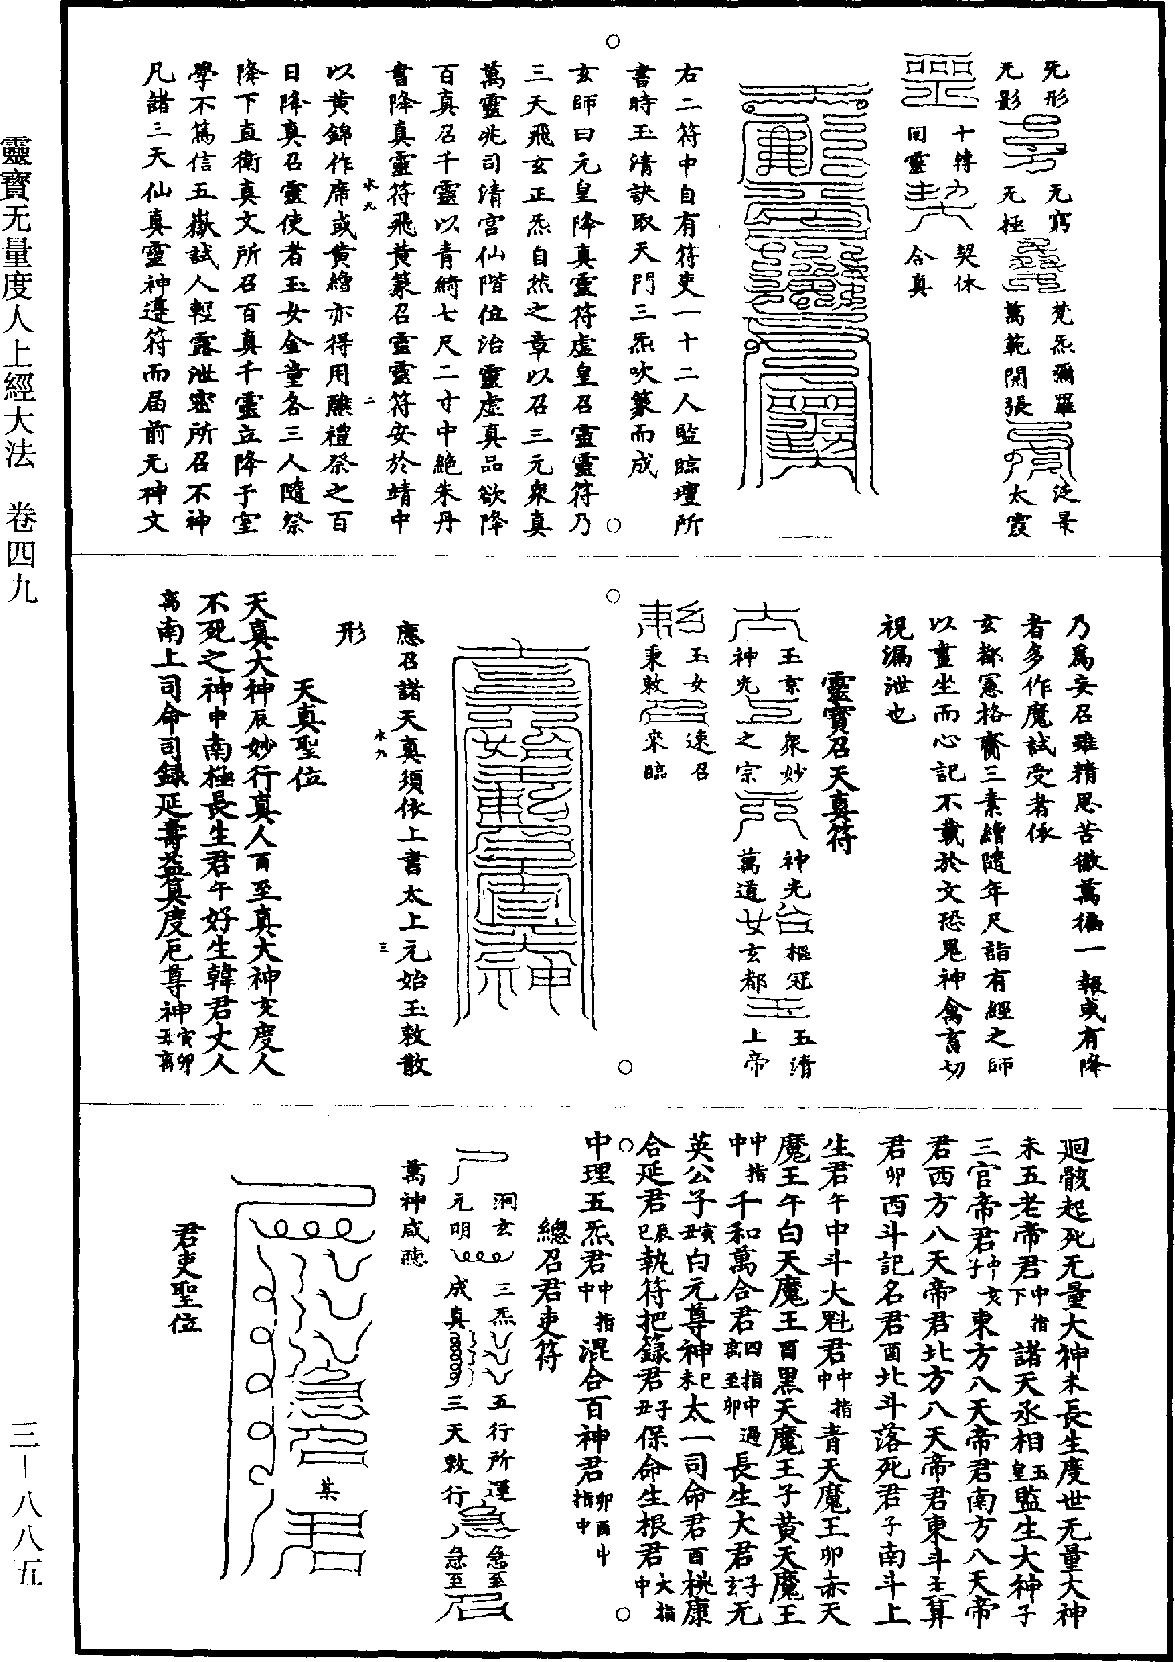 靈寶无量度人上經大法　卷四九
三—八八五
无形
无影
无窮
无極
梵炁彌羅
萬範開張
泛景
太霞
十轉
回靈
契休
合真
右二符中自有符吏一十二人監臨壇所
書時玉清訣取天門三炁吹篆而成
玄師曰元皇降真靈符虛皇召靈靈符乃
三天飛玄正炁自然之章以召三元衆真
萬靈兆司清宮仙階位治靈虛真品欲降
百真召千靈以青綺七尺二寸中絶朱丹
書降真靈符飛黃篆召靈靈符安於靖中
以黃錦作席或黃繒亦得用醮禮祭之百
日降真召靈使者玉女金童各三人隨祭
降下直衛真文所召百真千靈立降于室
學不篤信五嶽試人輕露泄密所召不神
凡諸三天仙真靈神遵符而届前无神文
乃爲妄召雖精思苦徹萬徧一報或有降
者多作魔試受者依
玄都憲格齎三素繒隨年尺詣有經之師
以晝坐而心記不載於文恐鬼神禽畜切
視漏泄也
靈寶召天真符
玉京
神光
衆妙
之宗
神光
萬道
樞冠
玄都
玉清
上帝
玉女
秉敕
速召
來臨
應召諸天真須依上書太上元始玉敕散
形
天真聖位
天真大神辰妙行真人酉至真大神亥度人
不死之神中南極長生君午好生韓君丈人
离南上司命司録延壽益筭度厄尊神寅卯丑离
迴骸起死无量大神未長生度世无量大神
未五老帝君中指下諸天丞相玉皇監生大神子
三官帝君中亥子東方八天帝君南方八天帝
君西方八天帝君北方八天帝君東斗主筭
君卯西斗記名君酉北斗落死君子南斗上
生君午中斗大魁君中指中青天魔王卯赤天
魔王午白天魔王酉黑天魔王子黃天魔王
中指中千和萬合君四指中過离至卯長生大君子玄无
英公子寅丑白元尊神巳未太一司命君酉桃康
合延君辰巳執符把籙君子丑保命生根君大指中
中理五炁君中指中混合百神君卯酉中指中
總召君吏符
洞玄
元明
三炁
成真
五行所運
三天敕行
急至
急至
萬神咸聽
某
君吏聖位